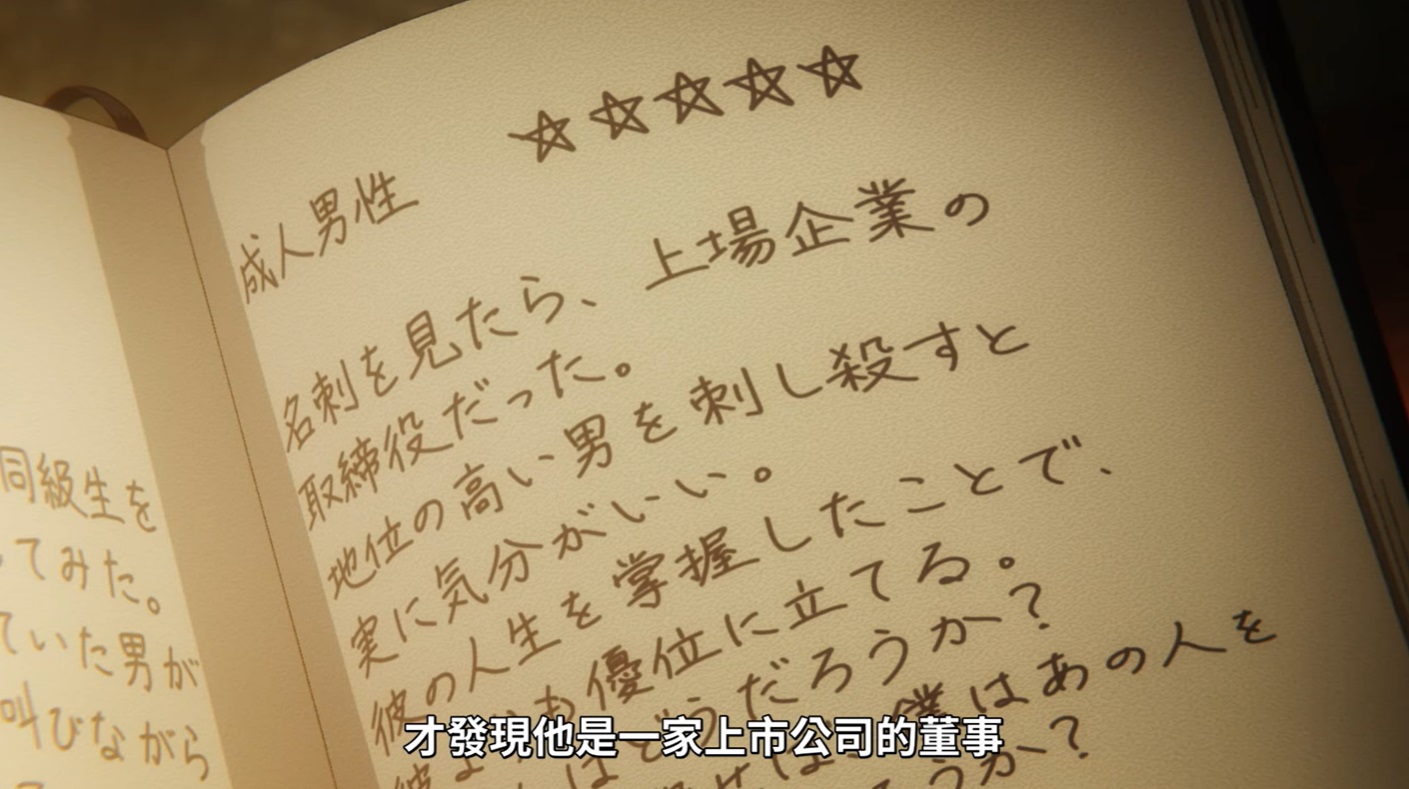 同級生を
てみた。
ていた男が
叫びながら
☆☆☆☆☆
成人男性
名刺を見たら、上場企業の
取締役だった。
地位の高い男を刺し殺すと
実に気分がいい。
彼の人生を掌握したことで、
彼よりも優位に立てる。
はどうだろうか？
僕はあの人を
ろうか？
才發現他是一家上市公司的董事